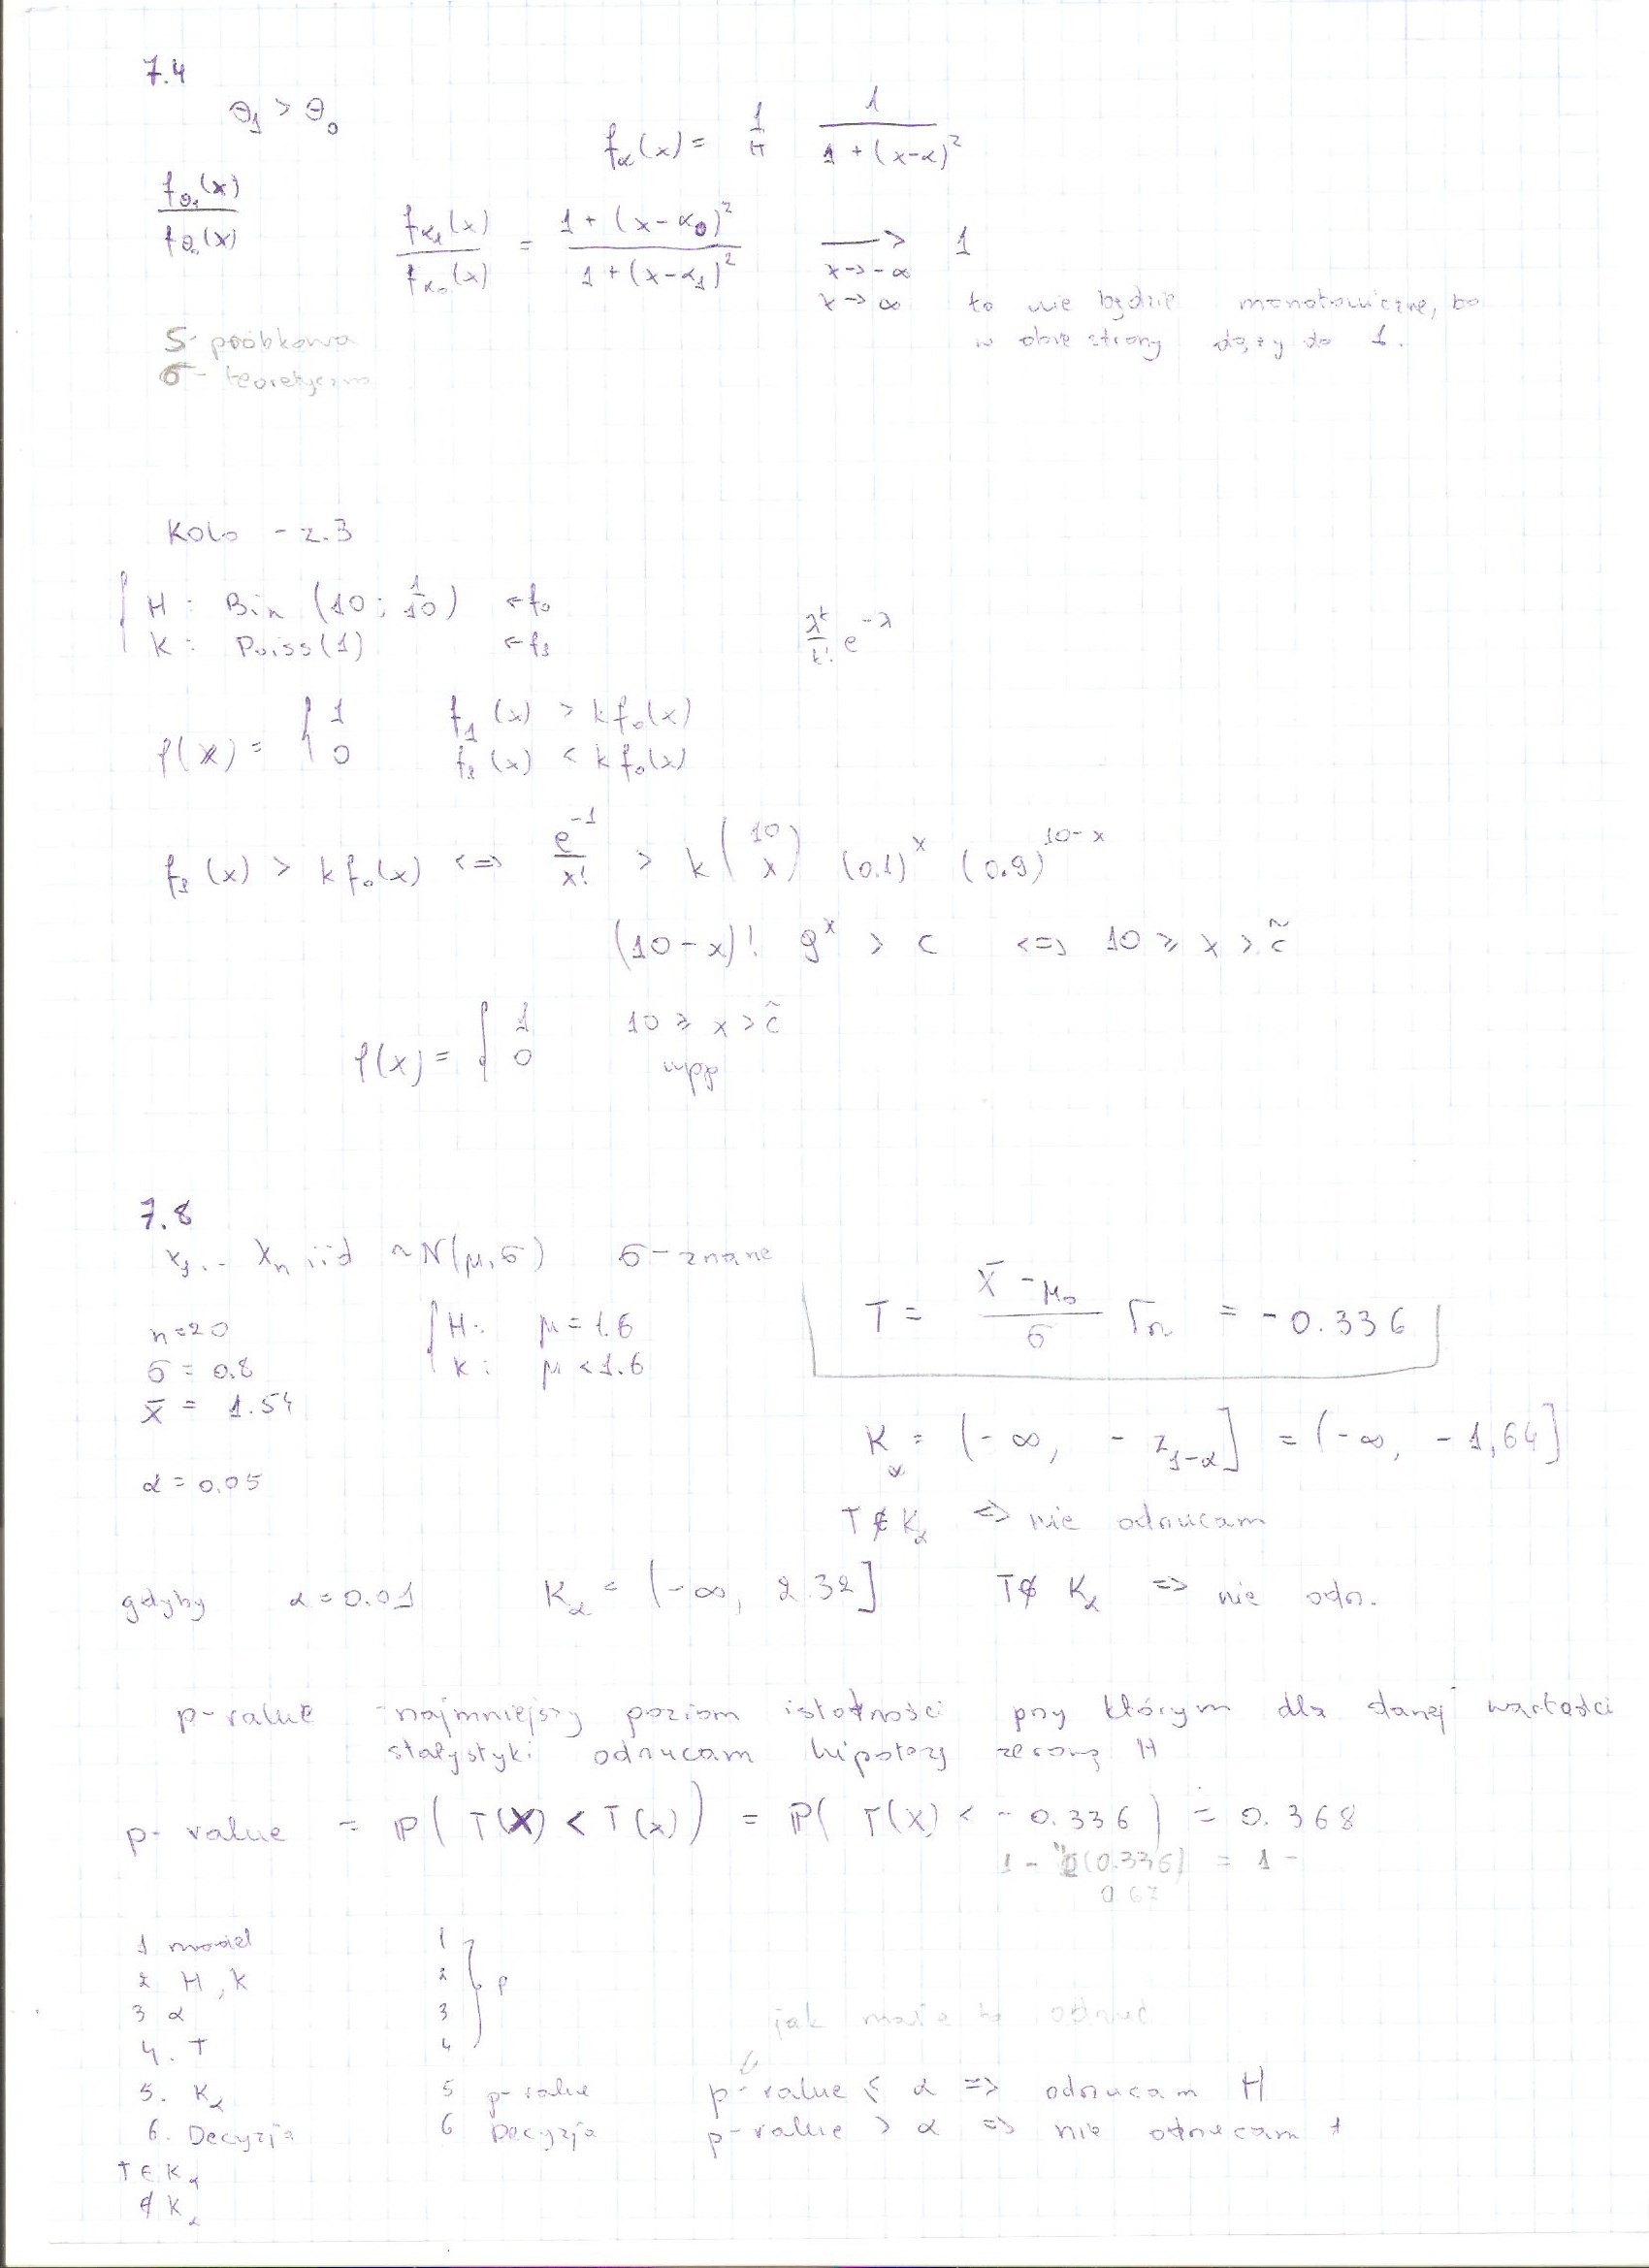 7.4
θ₁ > θ₀
f_α(x) = 1/π 1/(1 + (x-α)²)
f_θ₁(x) / f_θ₀(x)
f_α₁(x) / f_α₀(x) = (1 + (x-α₀)²) / (1 + (x-α₁)²) → 1
x→-∞
x→∞ to nie będzie monotoniczne, bo
w obie strony dąży do 1.
S - próbkowa
σ - teoretyczna
Kolo - z.3
H: Bin (10; 1/10) ← f₀
K: Poiss(1) ← f₁
λᵏ/k! e^-λ
φ(x) = { 1 f₁(x) > k f₀(x)
0 f₁(x) < k f₀(x)
f₁(x) > k f₀(x) <=> e⁻¹/x! > k (10 x) (0.1)^x (0.9)^10-x
(10-x)! 9^x > c <=> 10 ≥ x > c̃
φ(x) = { 1 10 ≥ x > c̃
0 wpp
7.8
x₁... Xₙ iid ~N(μ,σ) σ - znane
T = (x̄ - μ₀)/σ √n = -0.336
n=20
σ = 0.8
x̄ = 1.54
H: μ = 1.6
K: μ < 1.6
K_α = (-∞, -z₁₋α] = (-∞, -1,64]
α = 0.05
T ∉ K_α => nie odrzucam
gdyby α = 0.01 K_α = (-∞, 2.32] T ∉ K_α => nie odrz.
p-value - najmniejszy poziom istotności przy którym dla danej wartości
statystyki odrzucam hipotezę zerową H
p-value = ℙ(T(X) < T(x)) = ℙ(T(X) < -0.336) = 0.368
1 - Φ(0.336) = 1 -
0.67
1 model
2 H, K
3 α
4. T
5. K_α
6. Decyzja
T ∈ K_α
∉ K_α
1
2 } p
3
4
5 p-value
6 Decyzja
jak małe to odrzuć
p-value ≤ α => odrzucam H
p-value > α => nie odrzucam H